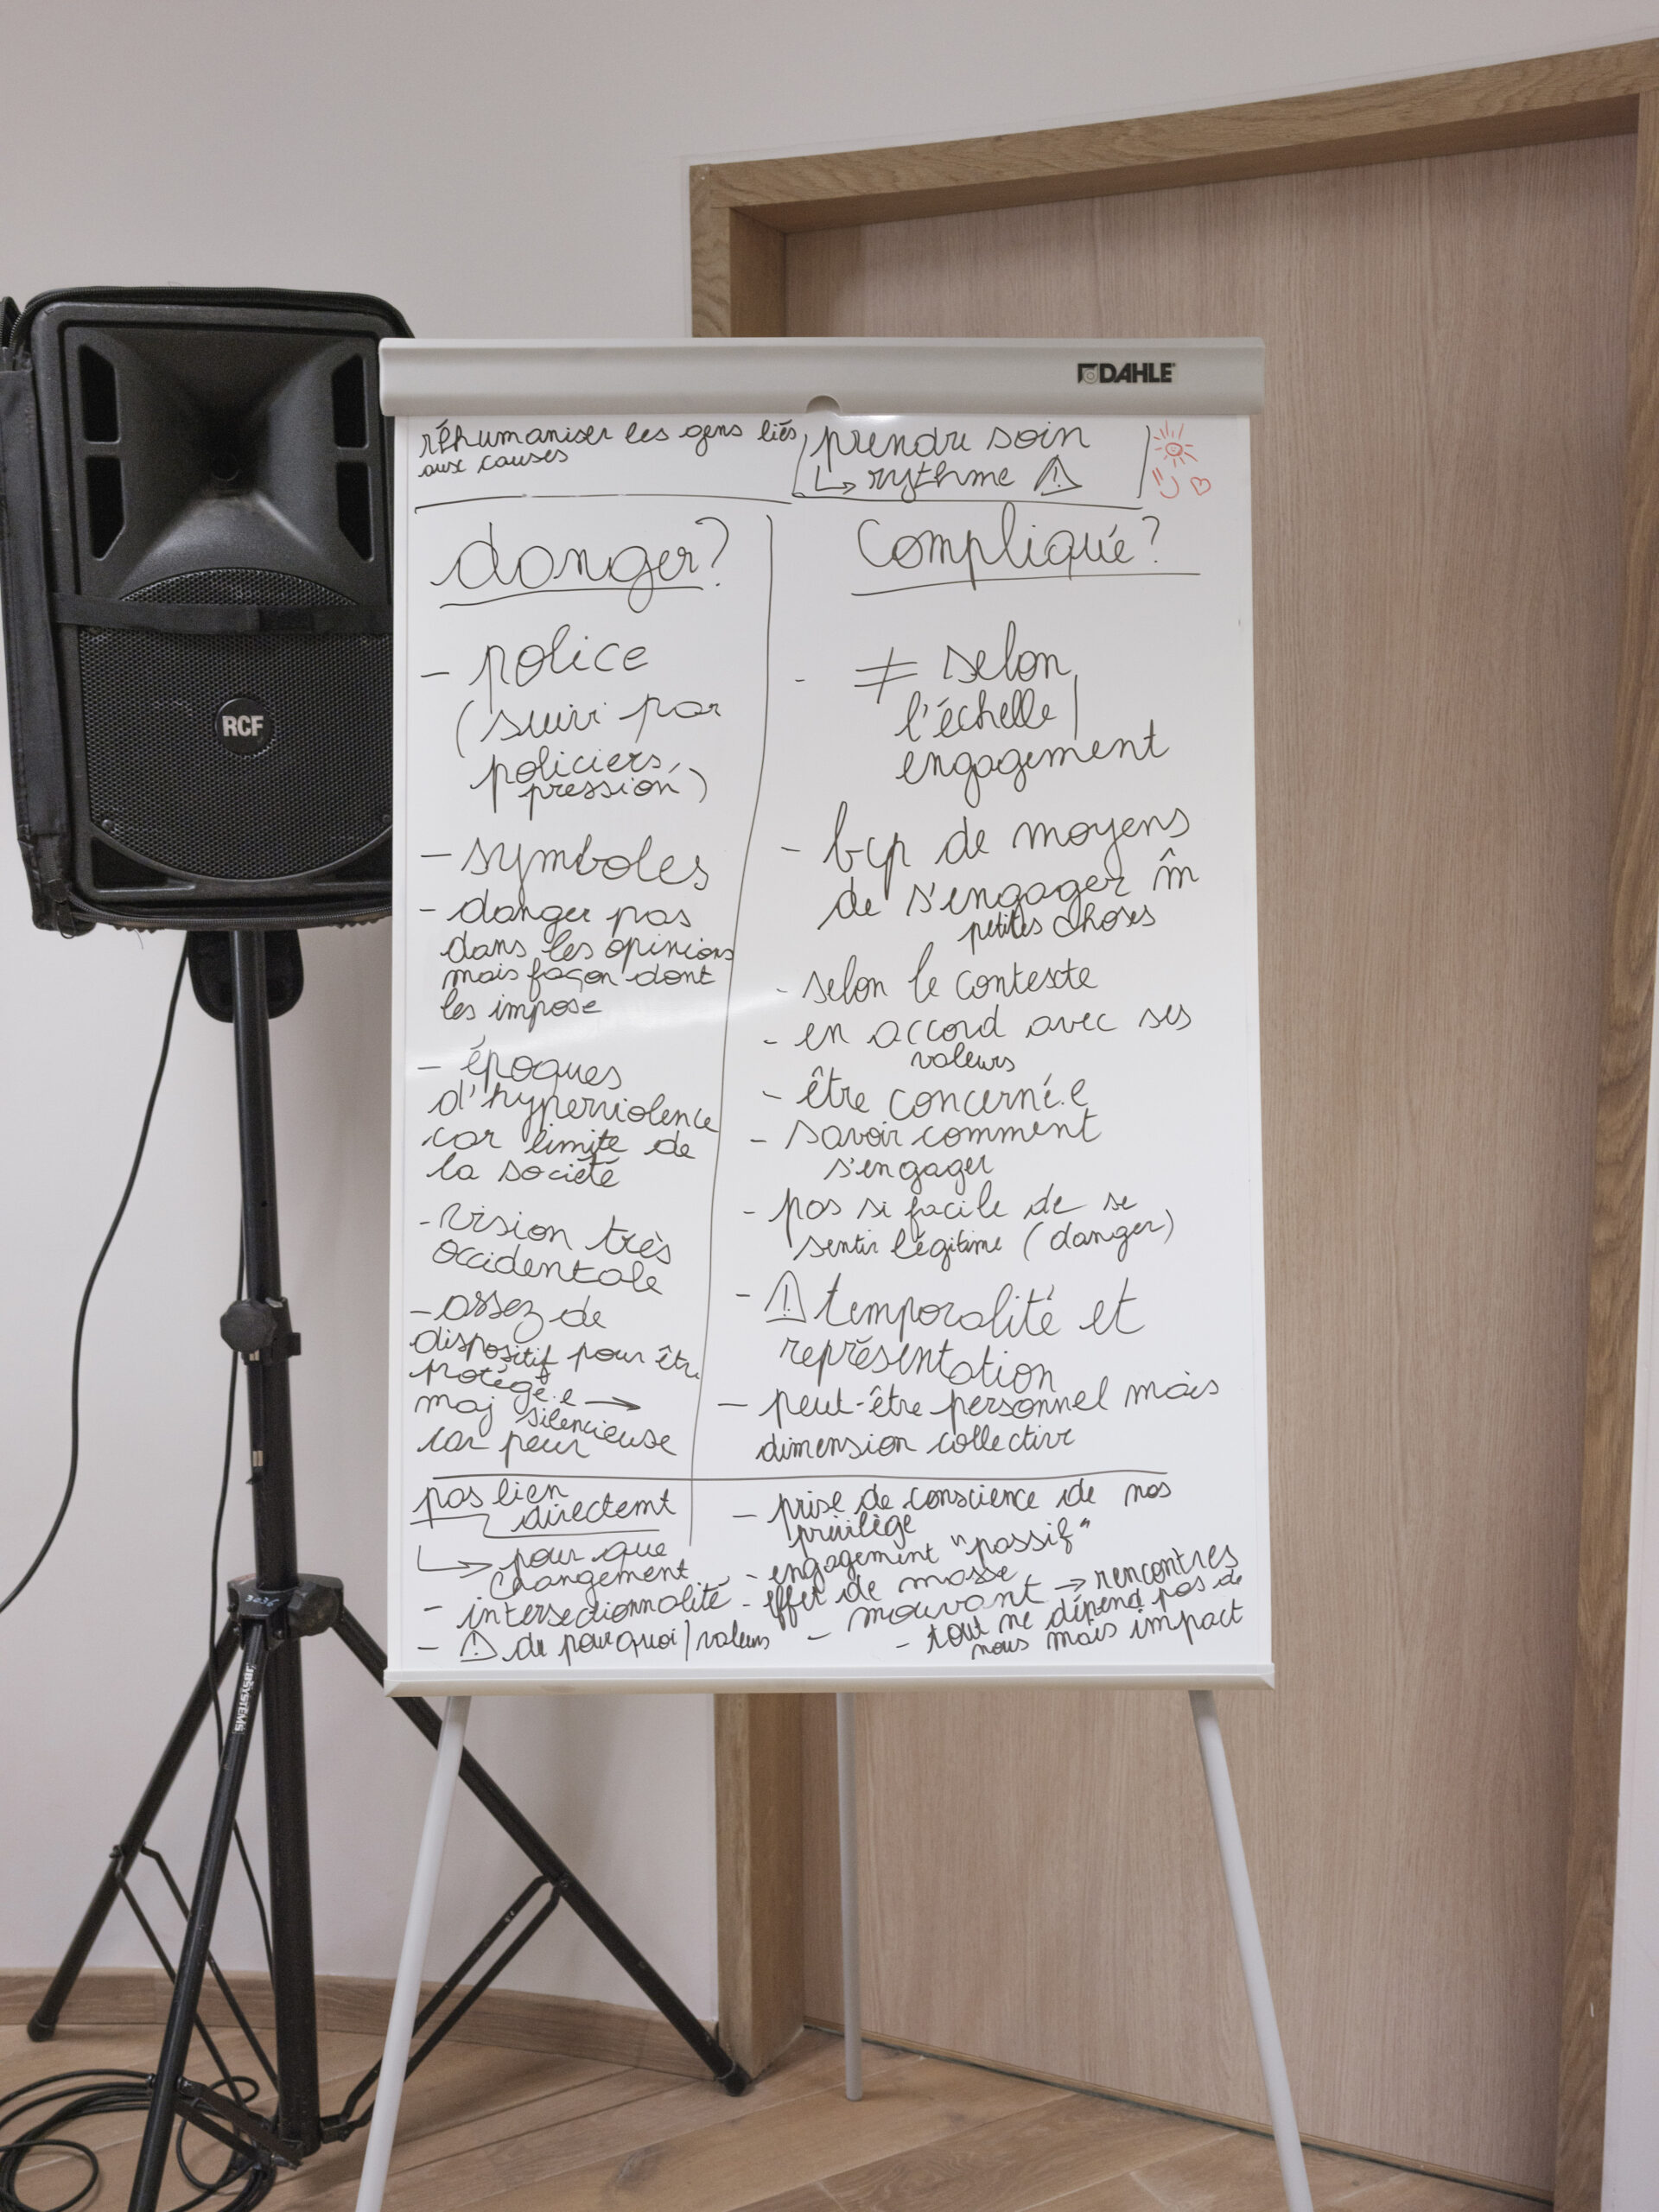 DAHLE
réhumaniser les gens liés
aux causes
prendre soin
↳ rythme ⚠
danger?
- police
(suivi par
policiers,
pression)
- symboles
- danger pas
dans les opinions
mais façon dont
les impose
- époques
d'hyperviolence
car limite de
la société
- vision très
occidentale
- assez de
dispositif pour êtr
protégé.e →
maj silencieuse
car peur
pas lien
directemt
↳ pour que
changement
- intersectionnalité
- ⚠ du pourquoi / valeurs
Compliqué?
- ≠ selon
l'échelle /
engagement
- bcp de moyens
de s'engager m̂
petites choses
- selon le contexte
- en accord avec ses
valeurs
- être concerné.e
- savoir comment
s'engager
- pas si facile de se
sentir légitime (danger)
- ⚠ temporalité et
représentation
- peut-être personnel mais
dimension collective
- prise de conscience de nos
privilège
- engagement "passif"
- effet de masse
- mouvant → rencontres
- tout ne dépend pas de
nous mais impact
RCF
3036